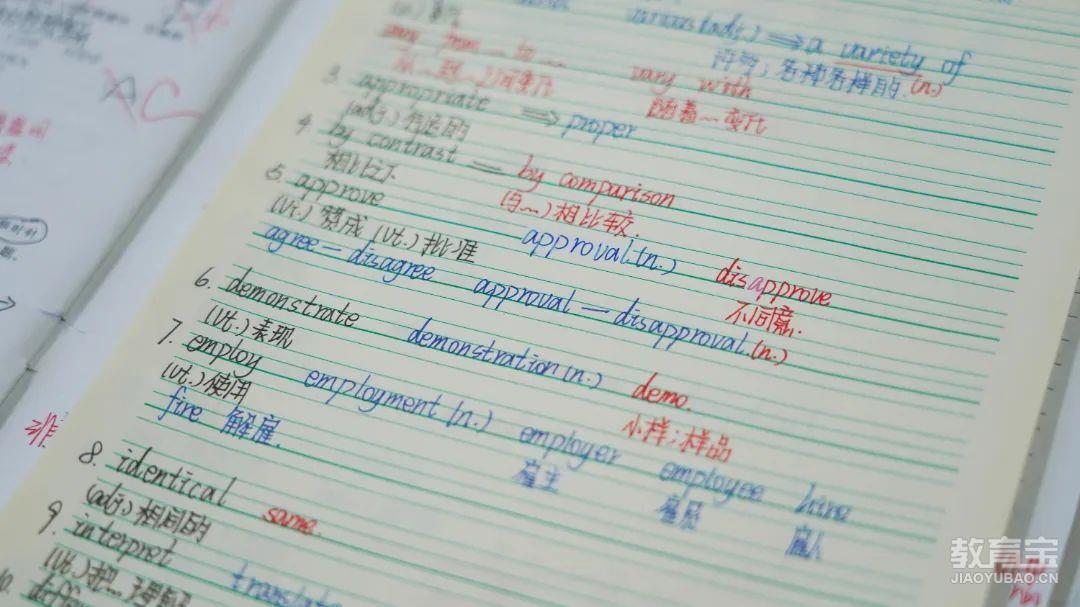 various(adj.) ⇒ a variety of
许多；各种各样的.(n.)
vary from … to …
vary with
随着…变化
3. appropriate ⇒ proper
(adj.) 合适的
4. by contrast = by comparison
相比之下
(与…) 相比较.
5. approve approval.(n.) disapprove
(vi.) 赞成 (vt.) 批准
不同意.
agree — disagree approval — disapproval.(n.)
6. demonstrate demonstration(n.) demo.
(vt.) 表现
小样；样品
7. employ employment (n.) employer employee hire
(vt.) 使用
雇主 雇员 雇人
fire 解雇.
8. identical same.
(adj.) 相同的
9. interpret translate
(vt.) 把…理解
10.
教育宝
JIAOYUBAO.CN